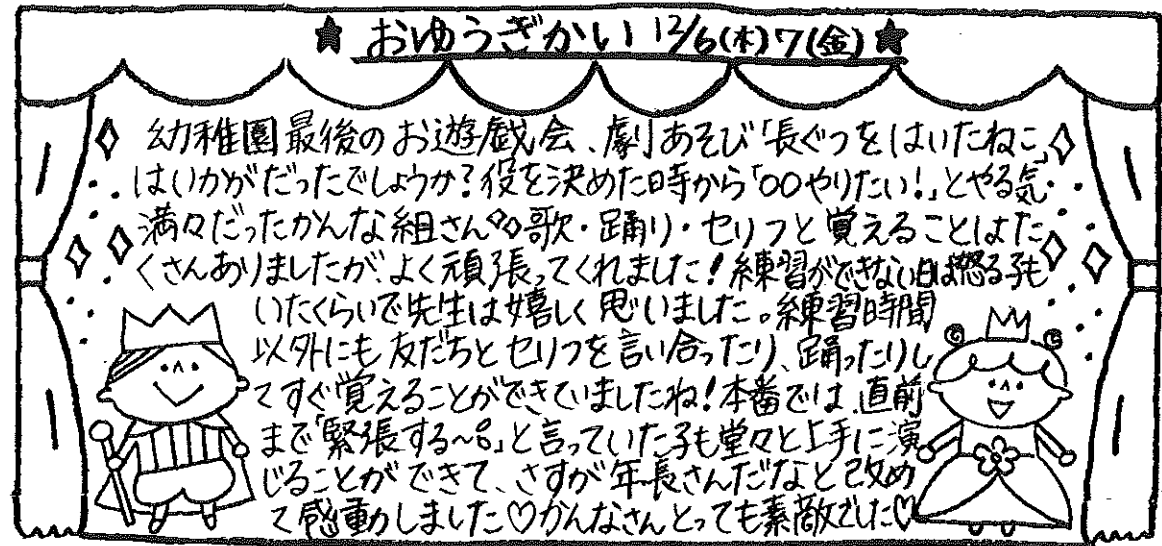 ★ おゆうぎかい 12/6(木)7(金)★
幼稚園最後のお遊戯会、劇あそび「長ぐつをはいたねこ」
はいかがだったでしょうか?役を決めた時から「○○やりたい!」とやる気
満々だったかんな組さん◇◇歌・踊り・セリフと覚えることはた
くさんありましたが、よく頑張ってくれました!練習ができない日は怒る子も
いたくらいで先生は嬉しく思いました。練習時間
以外にも友だちとセリフを言い合ったり、踊ったりし
てすぐ覚えることができていましたね!本番では、直前
まで「緊張する〜。」と言っていた子も堂々と上手に演
じることができて、さすが年長さんだなと改め
て感動しました♡かんなさんとっても素敵でした♡